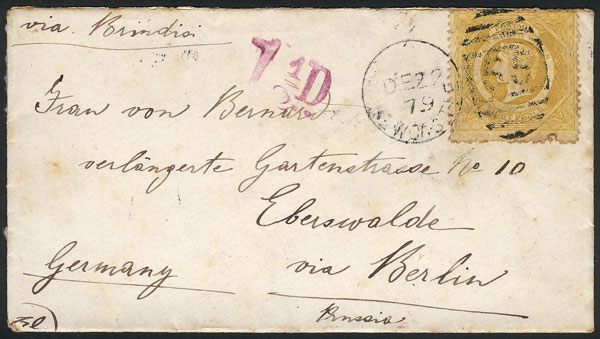 via Brindisi
7½D
DE 22
79
Frau von Bernard
verlängerte Gartenstrasse No 10
Eberswalde
Germany via Berlin
Prussia